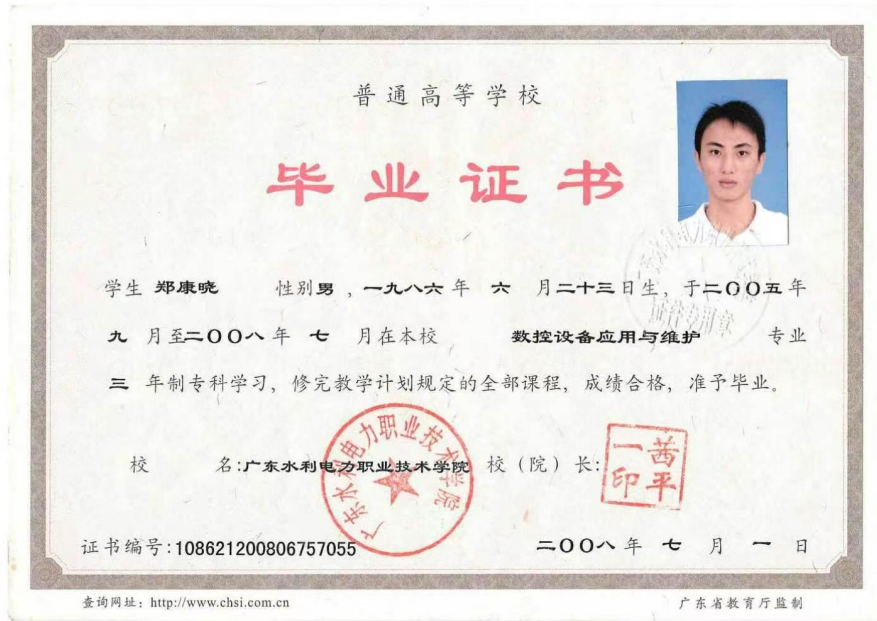 普通高等学校
毕业证书
学生 郑康晓 性别 男 ,一九八六 年 六 月二十三日生,于二〇〇五年
九 月至二〇〇八年 七 月在本校 数控设备应用与维护 专业
三 年制专科学习,修完教学计划规定的全部课程,成绩合格,准予毕业。
校 名:广东水利电力职业技术学院 校(院)长:
广东水利电力职业技术学院
一茜
印平
证书编号:108621200806757055 二〇〇八 年 七 月 一 日
查询网址:http://www.chsi.com.cn 广东省教育厅监制